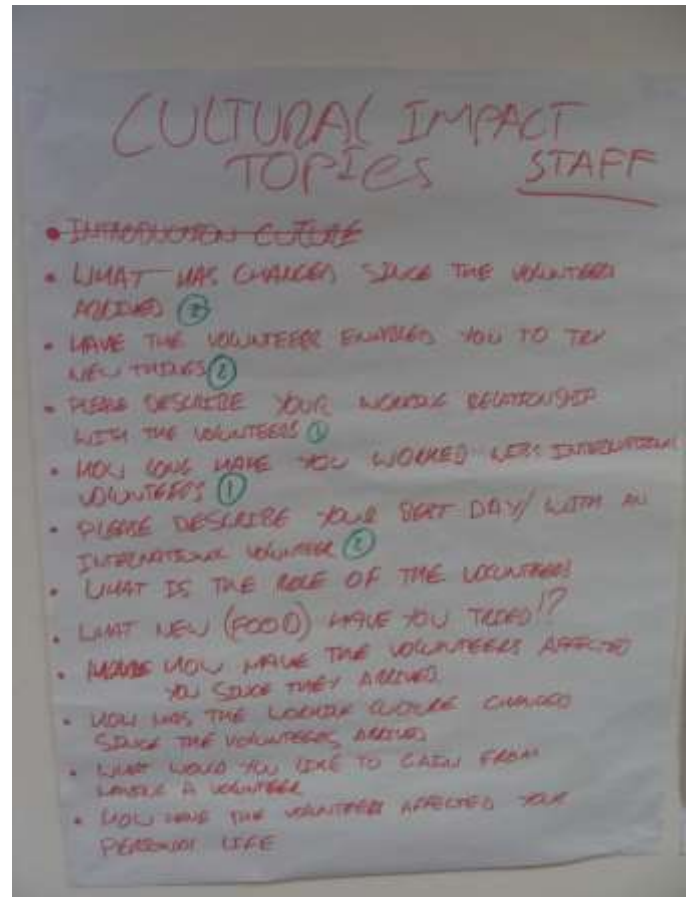 CULTURAL IMPACT
TOPICS STAFF
• INTRODUCTION CULTURE
• WHAT HAS CHANGED SINCE THE VOLUNTEERS
ARRIVED
• HAVE THE VOLUNTEERS ENABLED YOU TO TRY
NEW THINGS ②
• PLEASE DESCRIBE YOUR WORKING RELATIONSHIP
WITH THE VOLUNTEERS ①
• HOW LONG HAVE YOU WORKED WITH INTERNATIONAL
VOLUNTEERS ①
• PLEASE DESCRIBE YOUR BEST DAY/ WITH AN
INTERNATIONAL VOLUNTEER ②
• WHAT IS THE ROLE OF THE VOLUNTEERS
• WHAT NEW (FOOD) HAVE YOU TRIED!?
• HOW HAVE THE VOLUNTEERS AFFECTED
YOU SINCE THEY ARRIVED
• HOW HAS THE WORKING CULTURE CHANGED
SINCE THE VOLUNTEERS ARRIVED
• WHAT WOULD YOU LIKE TO GAIN FROM
HAVING A VOLUNTEER
• HOW HAVE THE VOLUNTEERS AFFECTED YOUR
PERSONAL LIFE